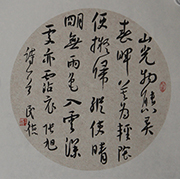 山光物態弄
春暉莫為輕陰
便擬歸縱使晴
明無雨色入雲深
處亦霑衣張旭
詩